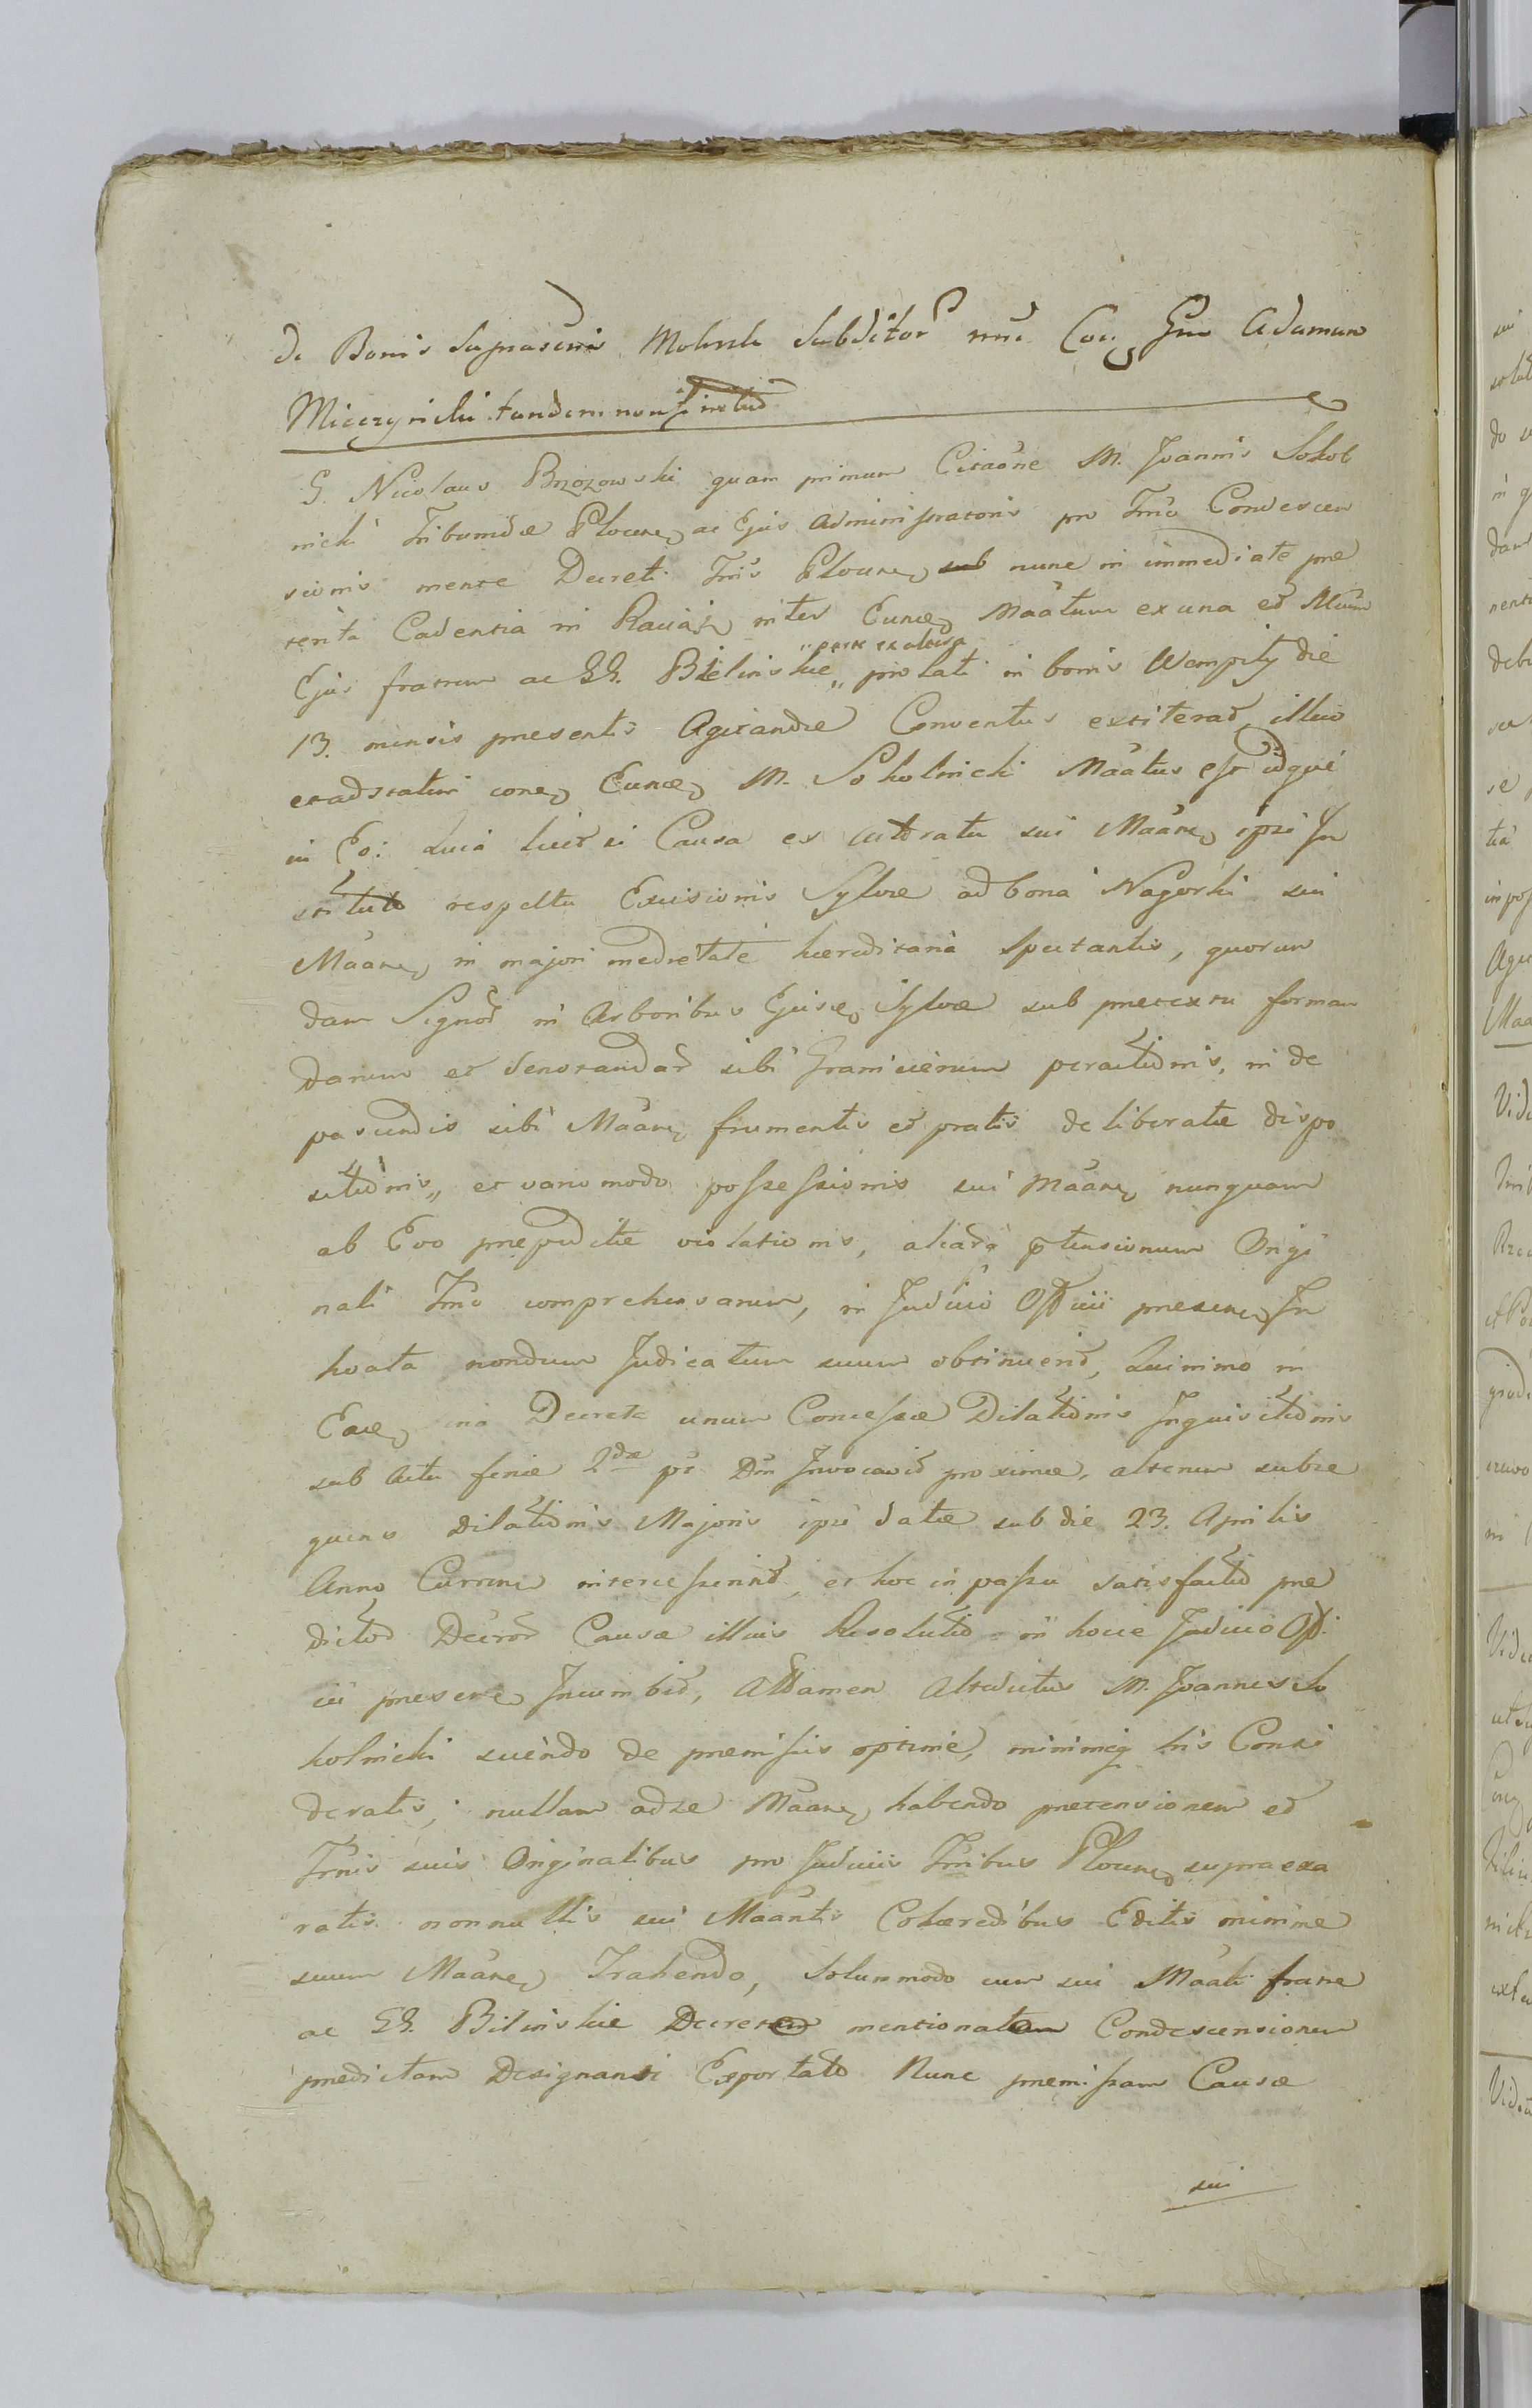 de Bonis Suprascris Molush Subditor nnc Coy Gnr Adamum
Mieczynski tandem non
G. Nicolaus Brzozowski quam primum Citaōne M. Joannis Sokol
nicki Tribunidæ Plocen ac Ejus Administratoris pro Tmō Condescen
sionis mense Decreti Tnis Plocen nunc in immediate præ
terita Cadentia in Raciąż inter Eunc Maātum ex una et
Ejus fratrem ac GG. Bielinskie „parte ex altera„ prolati in bonis Wempiły die
13. mensis presentis Agitandæ Conventus extiterat, illico
eradstatim conq Eunc M. Sokolnicki Maātus est idque
in Eo: Quia licet ei Causa ex cittoratu sui Maān ipsi In
stituto respectu Excisionis Sylvæ ad bona Nagorki sui
Maān in majori medietate hæreditariæ Spectantis, quorun
dam Signor in Arboribus Ejusd Sylvæ sub prætextu forman
darum et denotandar sibi Granicierum peractionis, in de
pascendis sibi Maān frumentis et pratis deliberatæ dispo
sitionis„ et vario modo possessionis sui Maān nunquam
ab Evo præpeditæ violationis, aliarq ptensionum Origi
nali Tmō comprehensarum, in Judicio Offcii presen In
hoata nondum Judicatum suum obtinuerit, Quinimo in
Eac una Decreta unum Concessæ Dilationis Inquisitionis
sub Actu feriæ 2dæ pt Dm Invocavit proximæ, alterum subse
quens Dilationis Majoris ipsi datæ sub die 23. Aprilis
Anno Curren intercesserint, et hoc in passu satisfactio præ
dictor Decror Causæ illius Resolutio in hocce Judicio Off
cii presen Incumbit, Attamen Altedictus M. Joannes So
kolnicki sciendo de præmissis optime, minimeq his Consi
deratis, nullam ad se Maān habendo pretensionem et
Tmis suis Originalibus pro Judiciis Tmibus Plocen supraexa
ratis nonnullis sui Maāntis Cohæredibus Editis minime
suum Maān Trahendo, Solummodo cum sui Maāti fratre
ac GG. Bilinskie Decretum mentionatam Condescensionem
prædictam Designansi Exportato Nunc præmissam Causæ
sui